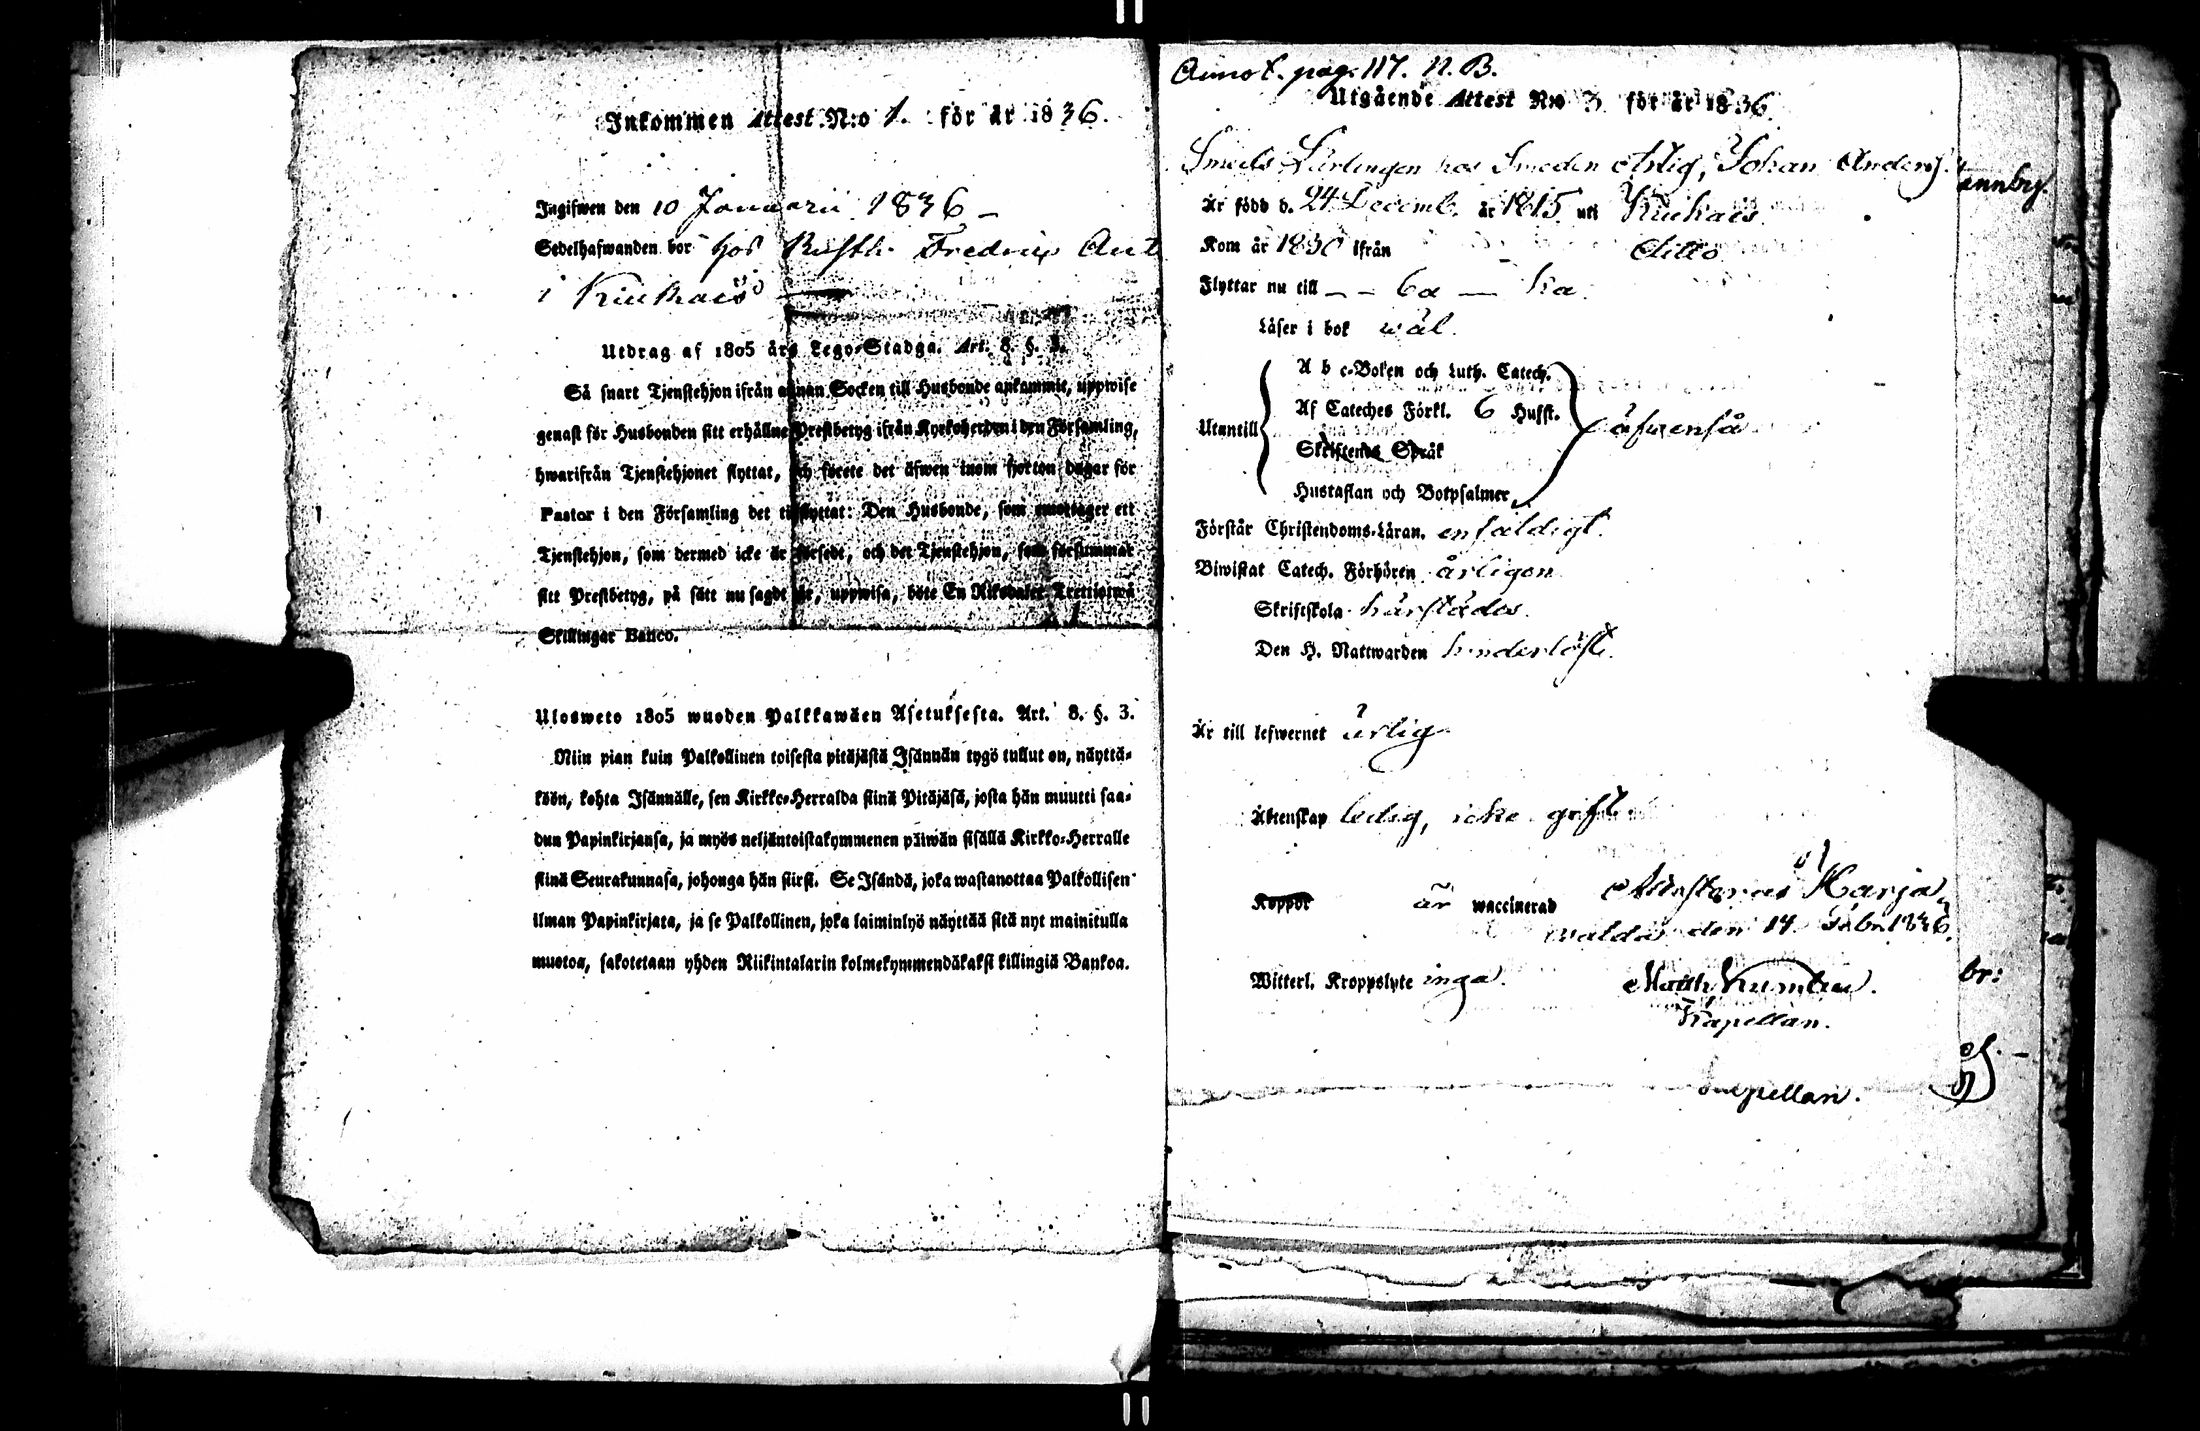 Inkommen Attest N:o 1. för år 1836.
Ingifwen den 10 Januarii 1836 –
Sedelhafwanden bor hos Rusth. Fredric Ant
i Kiukais
Utdrag af 1805 års Lego-Stadga. Art. 8 §. 3.
Så snart Tjenstehjon ifrån annan Socken till Husbonde ankommit, uppwise
genast för Husbonden sitt erhållne Prestbetyg ifrån Kyrkoherden i den Församling,
hwarifrån Tjenstehjonet flyttat, och förete det äfwen inom fjorton dagar för
Pastor i den Församling det tillflyttat: Den Husbonde, som emottager ett
Tjenstehjon, som dermed icke är försedt, och det Tjenstehjon, som försummar
sitt Prestbetyg, på sätt nu sagdt är, uppwisa, böte En Riksdaler Trettiotwå
Skillingar Banco.
Ulosweto 1805 wuoden Palkkawäen Asetuksesta. Art. 8. §. 3.
Niin pian kuin Palkollinen toisesta pitäjästä Isännän tygö tullut on, näyttä-
köön, kohta Isännälle, sen Kirkko-Herralda siinä Pitäjäsä, josta hän muutti saa-
dun Papinkirjansa, ja myös neljäntoistakymmenen päiwän sisällä Kirkko-Herralle
siinä Seurakunnasa, johonga hän siirsi. Se Isändä, joka wastanottaa Palkollisen
ilman Papinkirjata, ja se Palkollinen, joka laiminlyö näyttää sitä nyt mainitulla
muotoa, sakotetaan yhden Riikintalarin kolmekymmendäkaksi killingiä Bankoa.
Annot. pag. 117. N.B.
Utgående Attest N:o 3. för år 1836.
Smeds Lärlingen hos Smeden Ärlig, Johan Anders
annby.
Är född d. 24 Decemb. år 1815. uti Kiukais
Kom år 1830 ifrån ditto
Flyttar nu till – –
Läser i bok wäl.
Utantill
A b c-Boken och Luth. Catech.
Af Cateches Förkl. 6 Hufst.
Skriftenes Språk
Hustaflan och Botpsalmer,
äfwenså
Förstår Christendoms-Läran. enfaldigt.
Biwistat Catech. Förhören årligen
Skriftskola härstädes.
Den H. Nattwarden hinderlöst.
Är till lefwernet ärlig
Äktenskap ledig, icke gift
Koppor är waccinerad
Harja
walda den 14 Febr. 1836.
Witterl. Kroppslyte inga.
Matth.
Kapellan.
br:
Capellan.